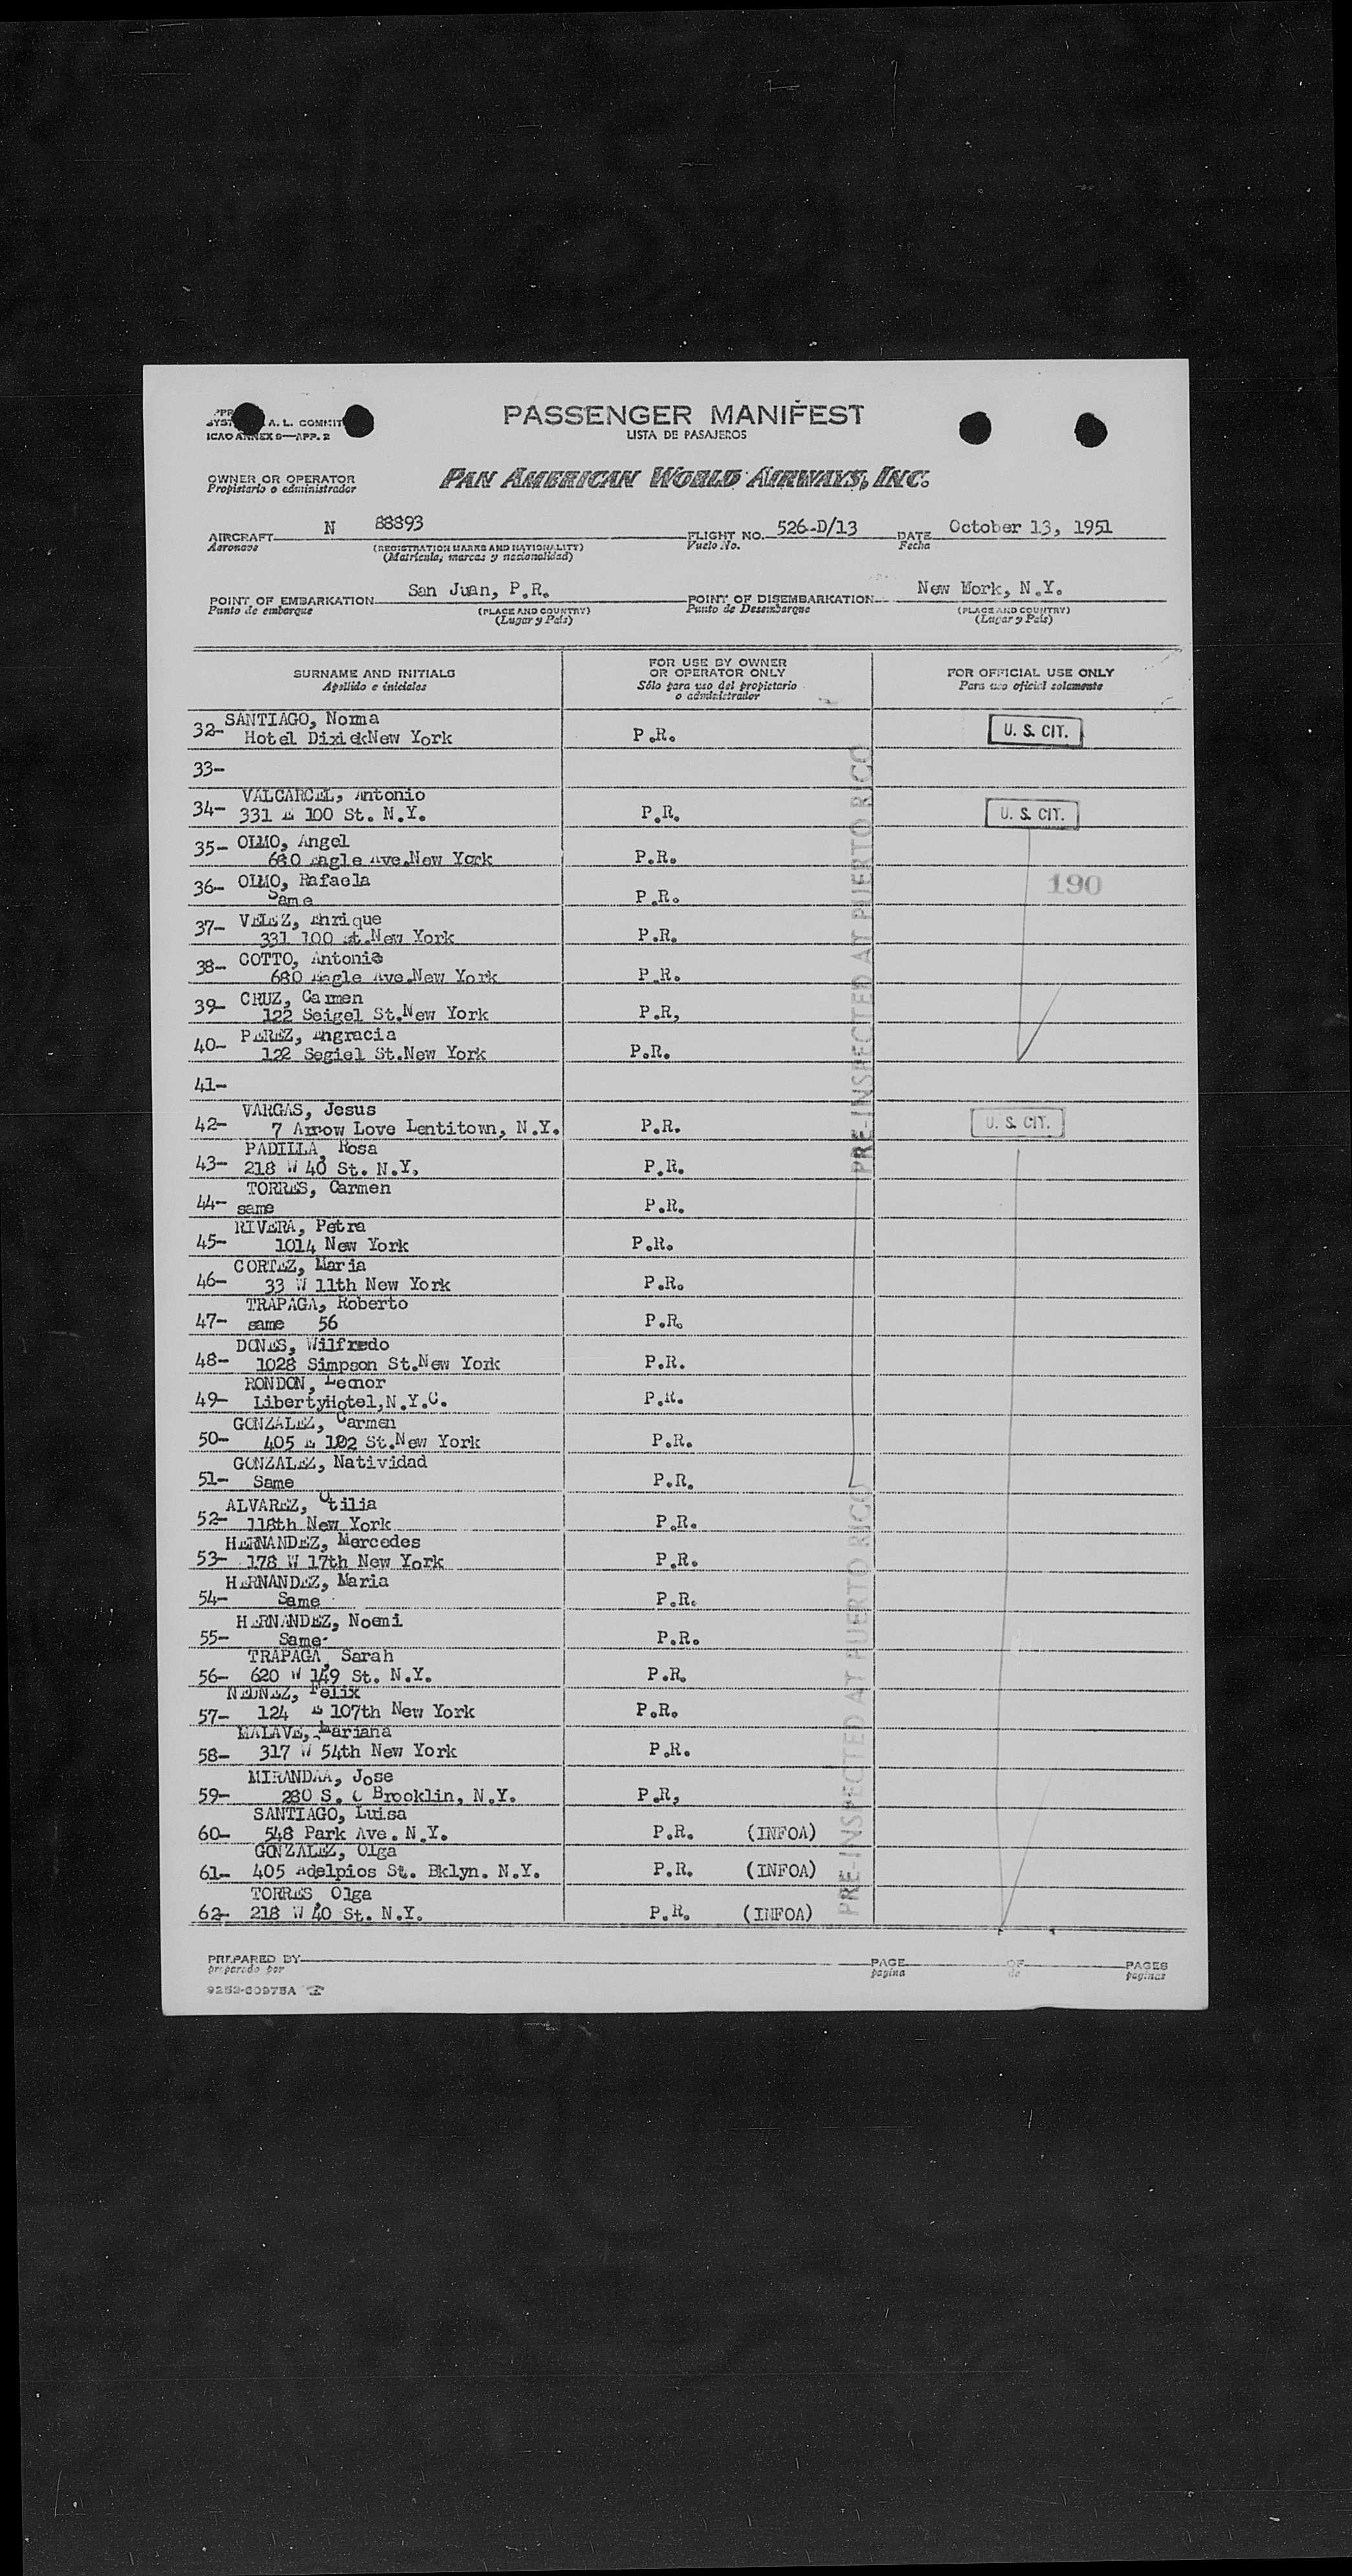 A. L. COMMIT
ICAO ANNEX 9—APP. 2
PASSENGER MANIFEST
LISTA DE PASAJEROS
OWNER OR OPERATOR
Propietario o administrador
PAN AMERICAN WORLD AIRWAYS, INC.
AIRCRAFT N 88893 FLIGHT NO. 526-D/13 DATE October 13, 1951
Aeronave (REGISTRATION MARKS AND NATIONALITY) Vuelo No. Fecha
(Matrícula, marcas y nacionalidad)
POINT OF EMBARKATION San Juan, P.R. POINT OF DISEMBARKATION New Work, N.Y.
Punto de embarque (PLACE AND COUNTRY) Punto de Desembarque (PLACE AND COUNTRY)
(Lugar y País) (Lugar y País)
SURNAME AND INITIALS FOR USE BY OWNER OR OPERATOR ONLY FOR OFFICIAL USE ONLY
Apellido e iniciales Sólo para uso del propietario o administrador Para uso oficial solamente
32- SANTIAGO, Norma
Hotel DixiekNew York P.R. U. S. CIT.
33-
34- VALCARCEL, Antonio
331 E 100 St. N.Y. P.R. U. S. CIT.
35- OLMO, Angel
680 Eagle Ave.New York P.R.
36- OLMO, Rafaela 190
Same P.R.
37- VELEZ, Enrique
331 100 St.New York P.R.
38- COTTO, Antonia
680 Eagle Ave.New York P.R.
39- CRUZ, Carmen
122 Seigel St.New York P.R,
40- PEREZ, Engracia
122 Segiel St.New York P.R.
41-
42- VARGAS, Jesus
7 Arrow Love Lentitown, N.Y. P.R. U. S. CIT.
43- PADILLA, Rosa
218 W 40 St. N.Y. P.R.
44- TORRES, Carmen
same P.R.
45- RIVERA, Petra
1014 New York P.R.
46- CORTEZ, Maria
33 W 11th New York P.R.
47- TRAPAGA, Roberto
same 56 P.R.
48- DONES, Wilfredo
1028 Simpson St.New York P.R.
49- RONDON, Leonor
LibertyHotel,N.Y.C. P.R.
50- GONZALEZ, Carmen
405 E 102 St.New York P.R.
51- GONZALEZ, Natividad
Same P.R.
52- ALVAREZ, Otilia
118th New York P.R.
53- HERNANDEZ, Mercedes
178 W 17th New York P.R.
54- HERNANDEZ, Maria
Same P.R.
55- HERNANDEZ, Noemi
Same P.R.
56- TRAPAGA, Sarah
620 W 149 St. N.Y. P.R.
57- NEUNEZ, Felix
124 E 107th New York P.R.
58- MALAVE, Mariana
317 W 54th New York P.R.
59- MIRANDAA, Jose
280 S. Brooklin, N.Y. P.R,
60- SANTIAGO, Luisa
548 Park Ave. N.Y. P.R. (INFOA)
61- GONZALEZ, Olga
405 Adelpios St. Bklyn. N.Y. P.R. (INFOA)
62- TORRES Olga
218 W 40 St. N.Y. P.R. (INFOA)
PRE-INSPECTED AT PUERTO RICO
PRE-INSPECTED AT PUERTO RICO
PREPARED BY PAGE OF PAGES
preparado por pagina de paginas
9253-60975A